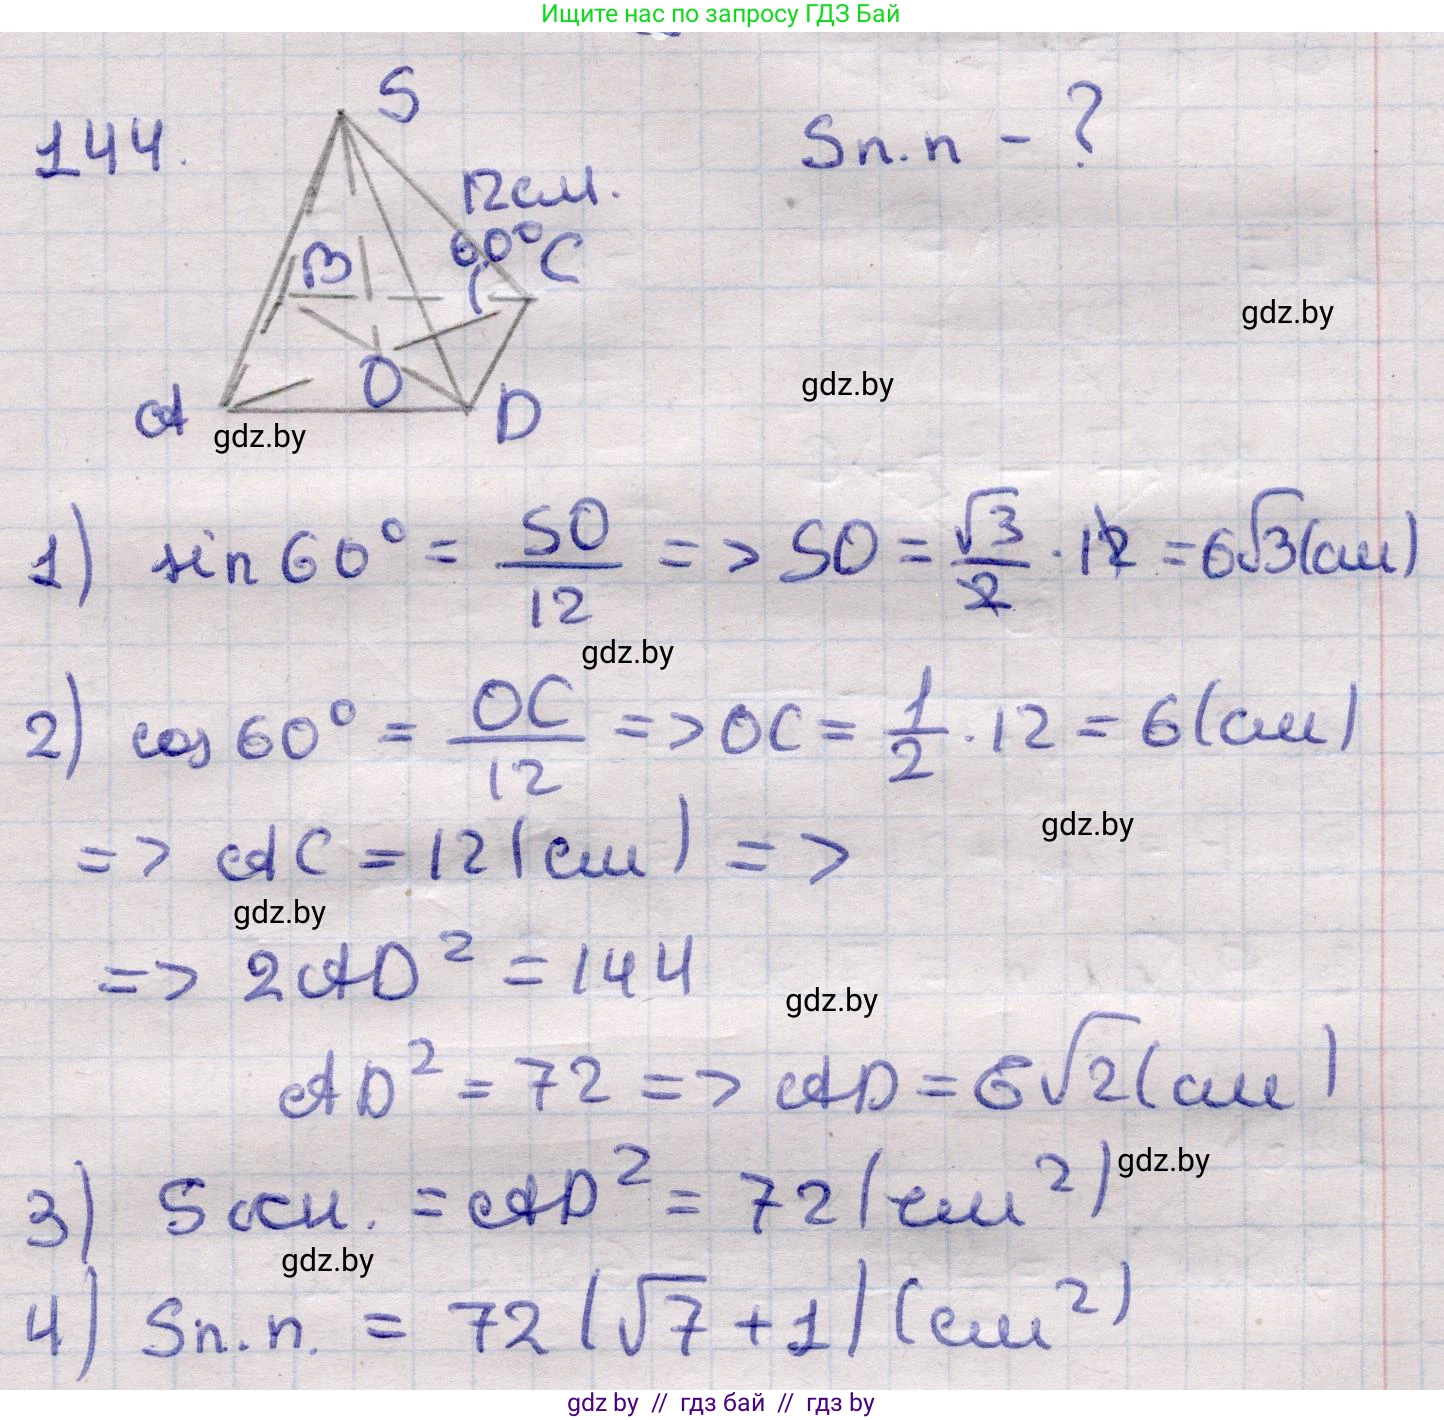 Ищите нас по запросу ГДЗ Бай
144.
S
Sп.п - ?
12см.
60°
B
C
gdz.by
gdz.by
O
A
D
gdz.by
1) sin 60° = SO/12 => SO = √3/2 · 12 = 6√3(см)
gdz.by
2) cos 60° = OC/12 => OC = 1/2 · 12 = 6(см)
gdz.by
=> AC = 12(см) =>
gdz.by
=> 2AD² = 144
gdz.by
AD² = 72 => AD = 6√2(см)
3) Sосн. = AD² = 72(см²)
gdz.by
gdz.by
4) Sп.п. = 72(√7 + 1)(см²)
gdz.by // гдз бай // гдз by